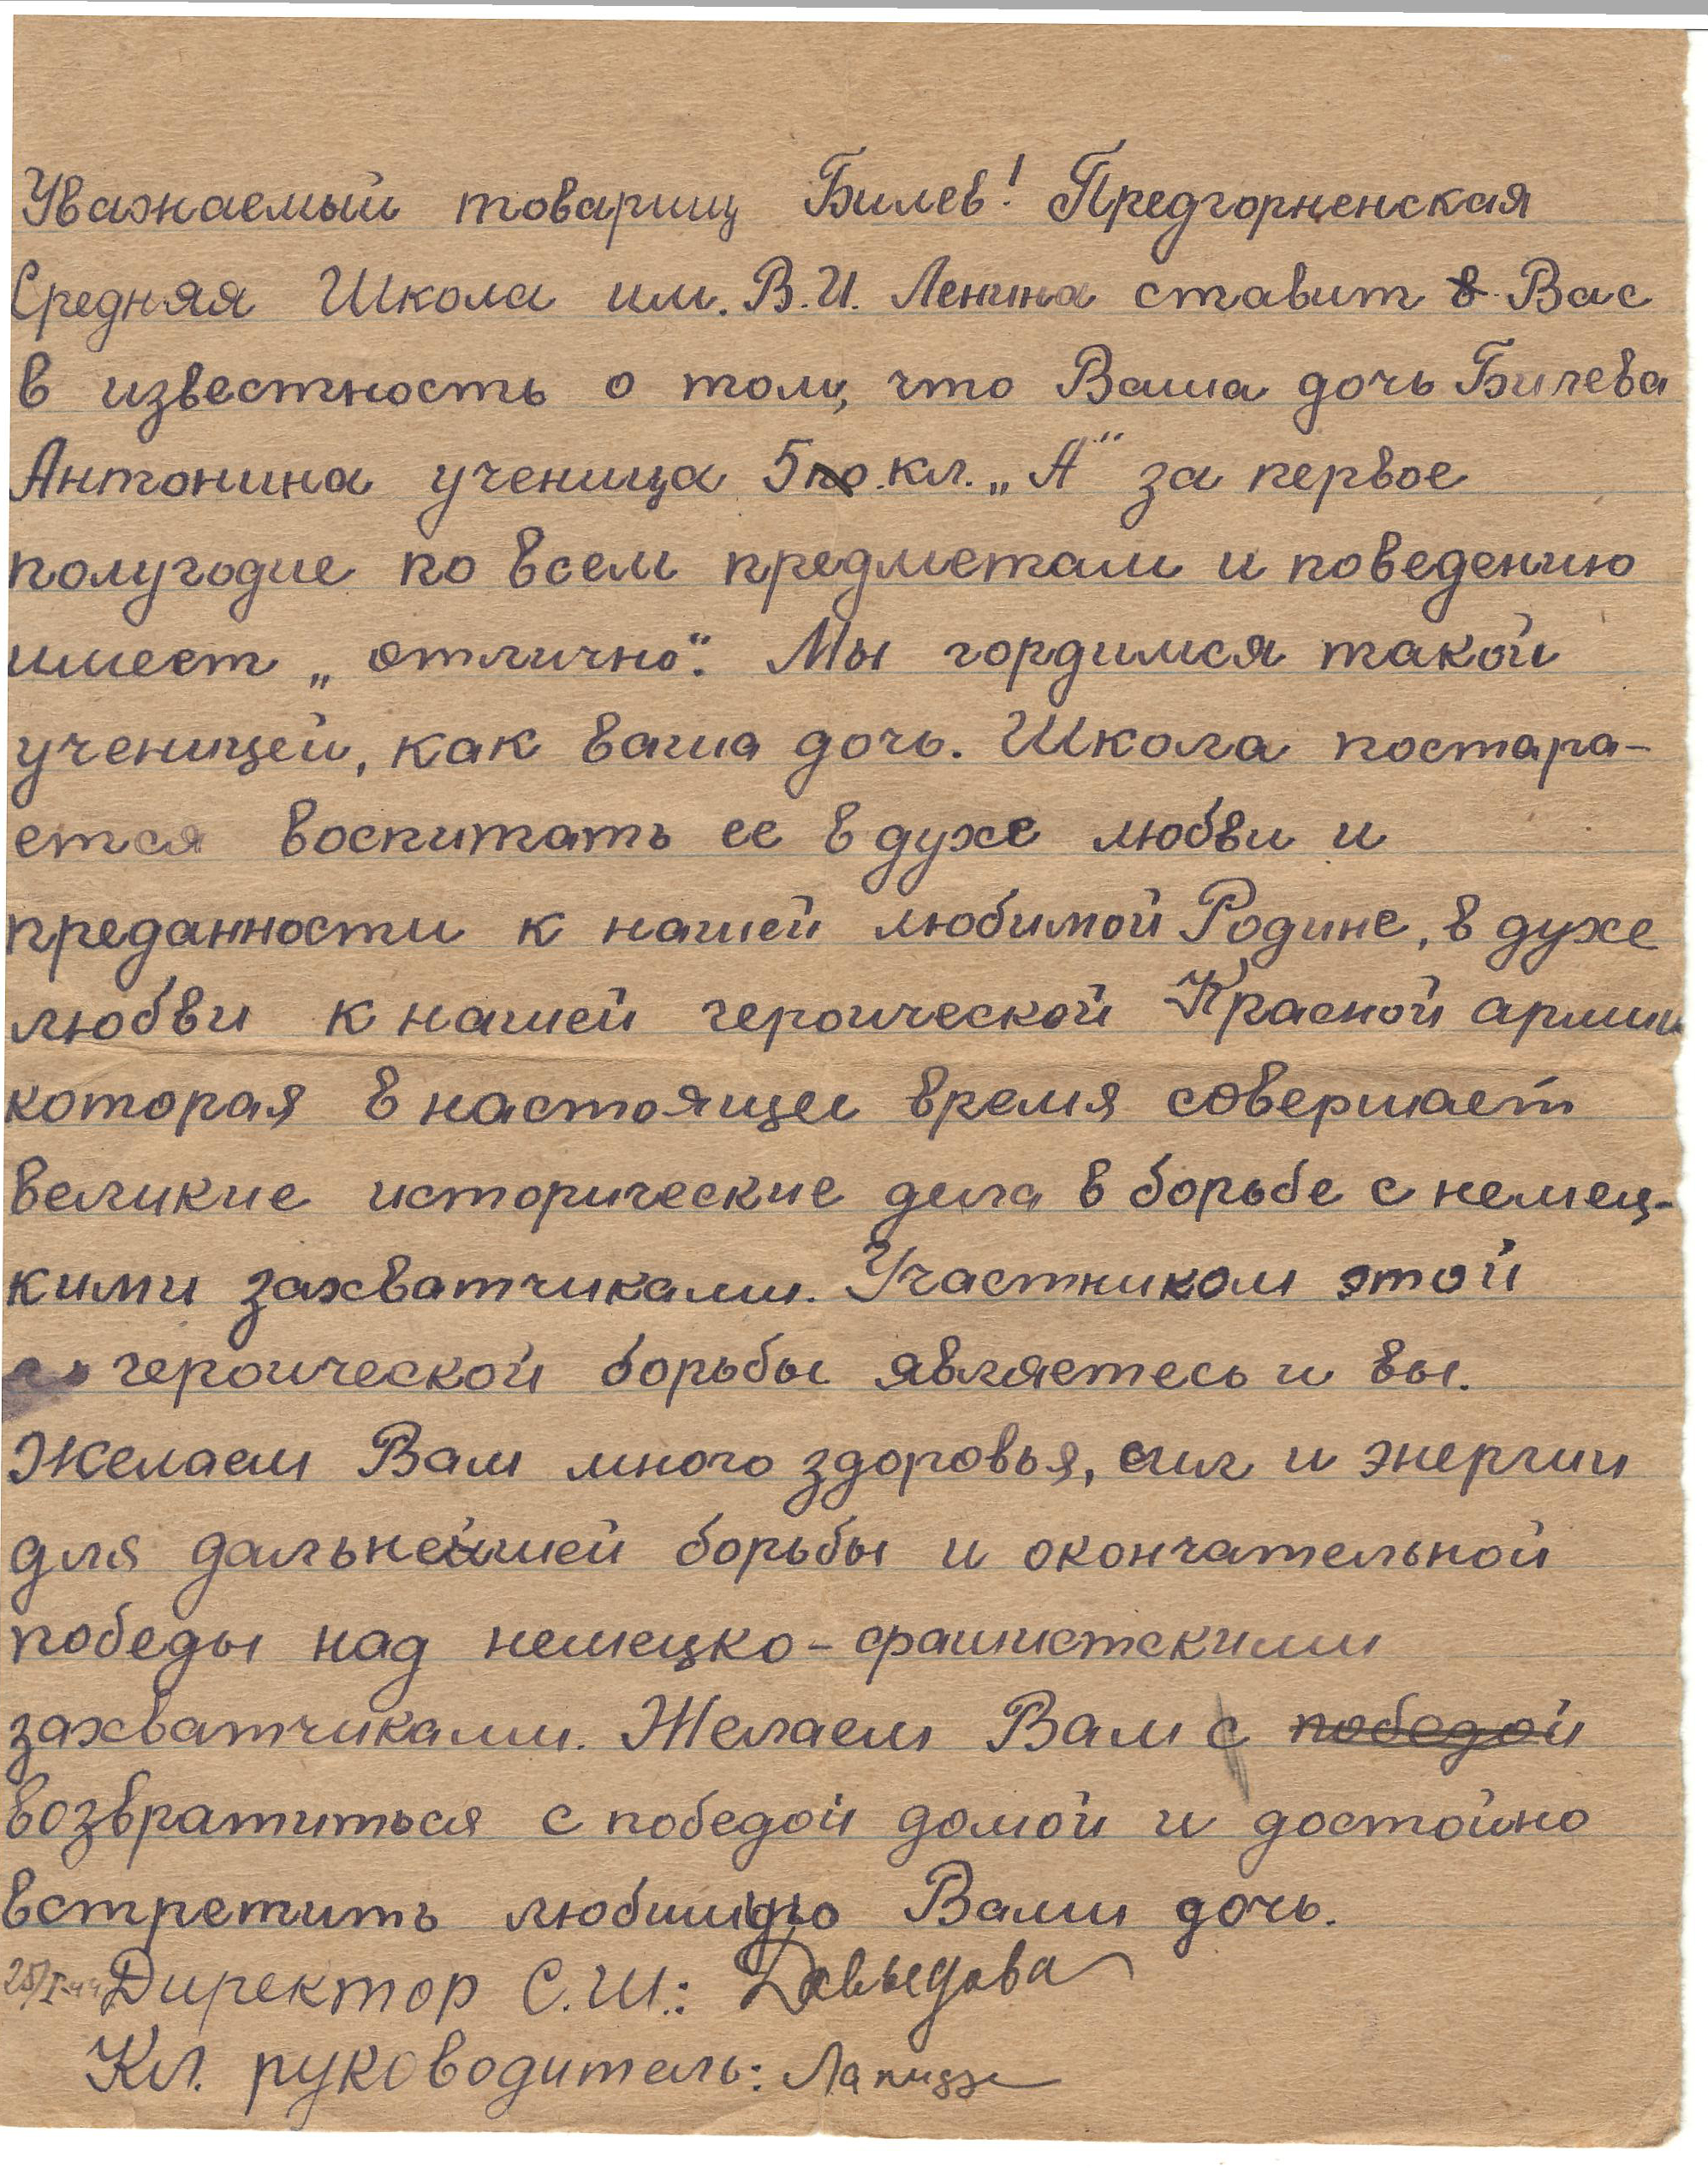 Уважаемый товарищ Билев! Предгорненская
Средняя Школа им. В.И. Ленина ставит в Вас
в известность о том, что Ваша дочь Билева
Антонина ученица 5го кл. „А“ за первое
полугодие по всем предметам и поведению
имеет „отлично“. Мы гордимся такой
ученицей, как ваша дочь. Школа постара-
ется воспитать ее в духе любви и
преданности к нашей любимой Родине, в духе
любви к нашей героической Красной армии
которая в настоящее время совершает
великие исторические дела в борьбе с немец-
кими захватчиками. Участником этой
героической борьбы являетесь и вы.
Желаем Вам много здоровья, сил и энергии
для дальнейшей борьбы и окончательной
победы над немецко-фашистскими
захватчиками. Желаем Вам с победой
возвратиться с победой домой и достойно
встретить любимую Вами дочь.
25/I-44 Директор С.Ш.: Давыдова
Кл. руководитель: